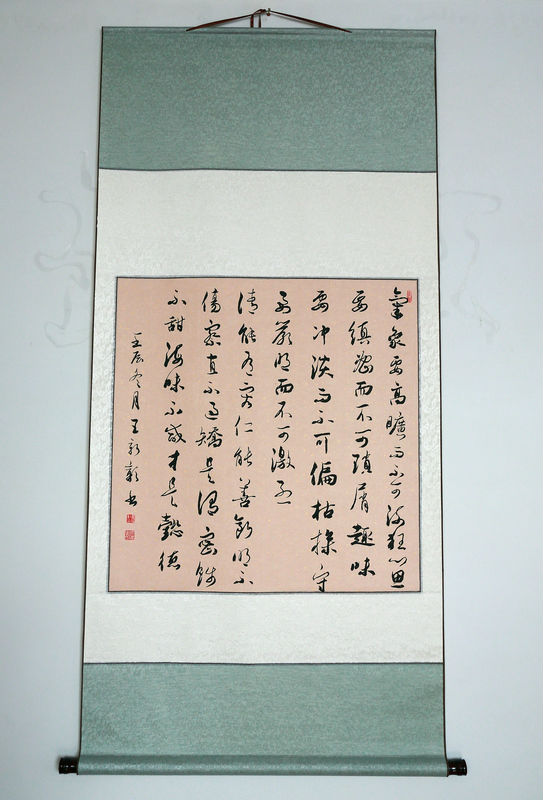 氣象要高曠而不可疏狂心思
要縝密而不可瑣屑趣味
要冲淡而不可偏枯操守
要嚴明而不可激烈
清能有容仁能善斷明不
傷察直不過矯是謂蜜餞
不甜海味不咸才是懿德
壬辰冬月王書